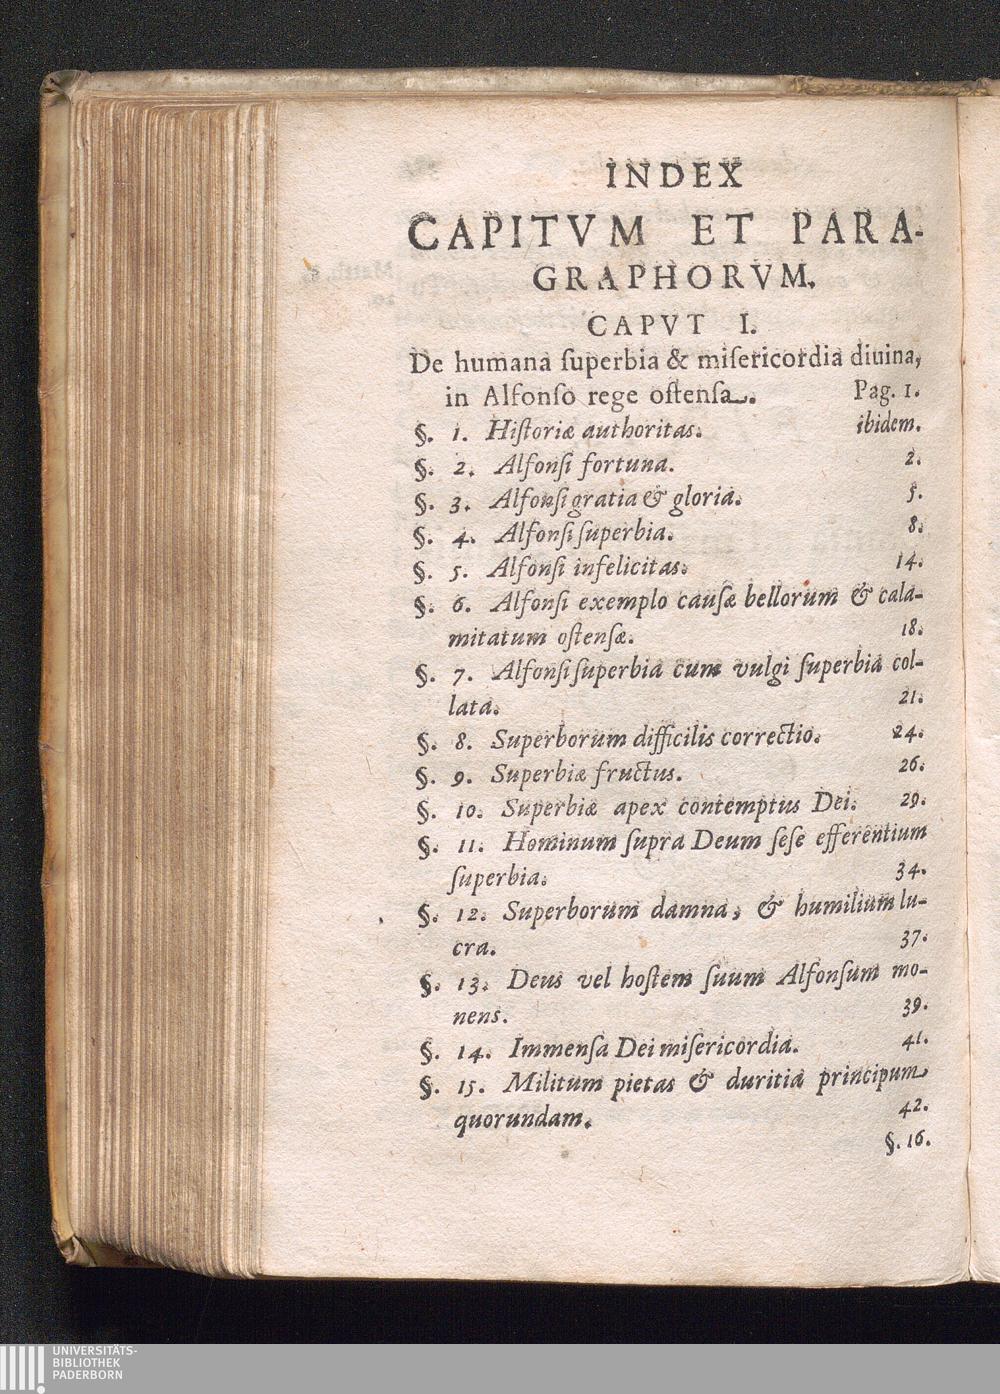 INDEX
CAPITVM ET PARA-
GRAPHORVM.
CAPVT I.
De humana ſuperbia & miſericordia diuina,
in Alfonſo rege oſtenſa. Pag. 1.
§. 1. Hiſtoriæ authoritas. ibidem.
§. 2. Alfonſi fortuna. 2.
§. 3. Alfonſi gratia & gloria. 5.
§. 4. Alfonſi ſuperbia. 8.
§. 5. Alfonſi infelicitas. 14.
§. 6. Alfonſi exemplo cauſæ bellorum & cala-
mitatum oſtenſæ. 18.
§. 7. Alfonſi ſuperbia cum vulgi ſuperbia col-
lata. 21.
§. 8. Superborum difficilis correctio. 24.
§. 9. Superbiæ fructus. 26.
§. 10. Superbiæ apex contemptus Dei. 29.
§. 11. Hominum ſupra Deum ſeſe efferentium
ſuperbia. 34.
§. 12. Superborum damna, & humilium lu-
cra. 37.
§. 13. Deus vel hoſtem ſuum Alfonſum mo-
nens. 39.
§. 14. Immenſa Dei miſericordia. 41.
§. 15. Militum pietas & duritia principum
quorundam. 42.
§. 16.
UNIVERSITÄTS-
BIBLIOTHEK
PADERBORN